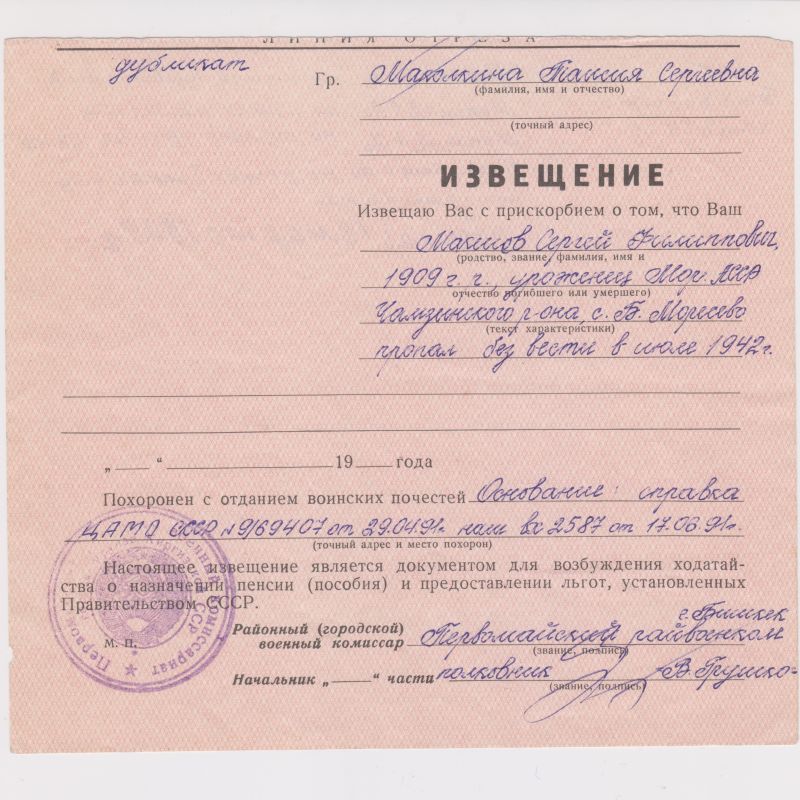 ЛИНИЯ ОТРЕЗА
дубликат
Гр. Маколкина Таисия Сергеевна
(фамилия, имя и отчество)
(точный адрес)
ИЗВЕЩЕНИЕ
Извещаю Вас с прискорбием о том, что Ваш
Макшов Сергей Филиппович,
(родство, звание, фамилия, имя и
1909 г. г., уроженец Мор. АССР
отчество погибшего или умершего)
Чамзинского р-она, с. Б. Моресево
(текст характеристики)
пропал без вести в июле 1942 г.
„ “ 19 года
Похоронен с отданием воинских почестей Основание: справка
ЦАМО СССР № 9/69407 от 29.04.91г. наш вх 2587 от 17.06.91г.
(точный адрес и место похорон)
Настоящее извещение является документом для возбуждения ходатай-
ства о назначении пенсии (пособия) и предоставлении льгот, установленных
Правительством СССР.
г. Бишкек
Районный (городской)
военный комиссар Первомайский райвоенком
(звание, подпись)
М. П.
Начальник „ “ части полковник В Грушко
(звание, подпись)